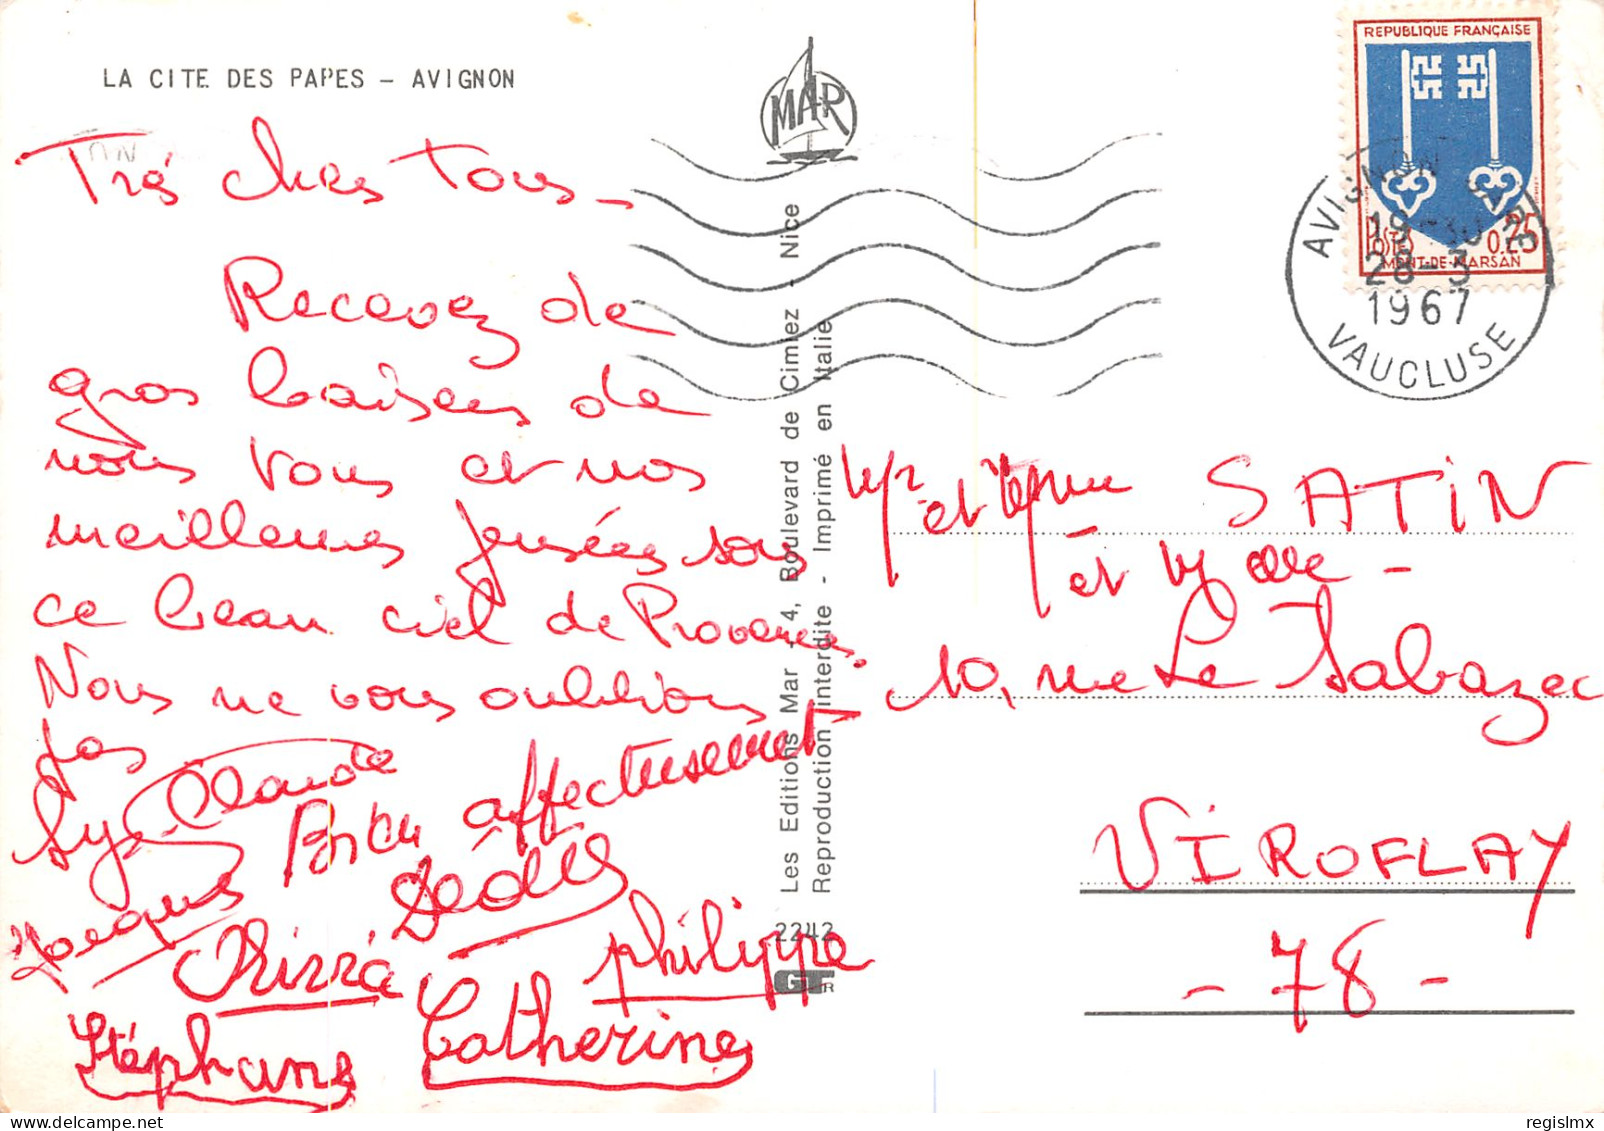 LA CITE DES PAPES – AVIGNON
Très chers tous –
Recevez de
gros baisers de
nous tous et nos
meilleures pensées sous
ce beau ciel de Provence.
Nous ne vous oublions
pas
Claude
Bien affectueusement
Jacques
Dédée
Philippe
Stéphane
Catherine
MAR
Les Editions Mar - 4, Boulevard de Cimiez - Nice
Reproduction interdite - Imprimé en Italie
2242
REPUBLIQUE FRANÇAISE
POSTES 0.25
MONT-DE-MARSAN
AVIGNON GARE
19-30
28-3
1967
VAUCLUSE
et Mme SATIN
et Melle –
10, rue Le
VIROFLAY
– 78 –
regislmx